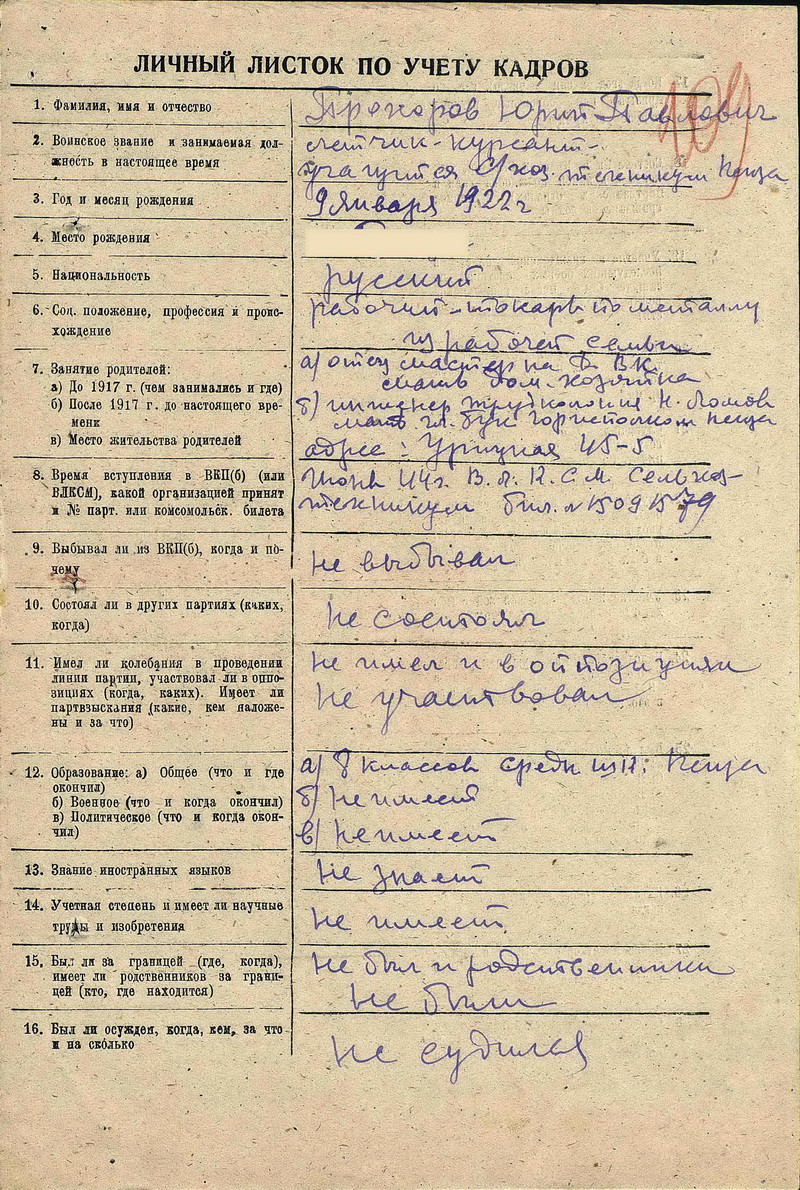 ЛИЧНЫЙ ЛИСТОК ПО УЧЕТУ КАДРОВ
109
1. Фамилия, имя и отчество
Прохоров Юрий Павлович
2. Воинское звание и занимаемая дол-
жность в настоящее время
летчик-курсант-
учащийся с/хоз. техникум Пенза
3. Год и месяц рождения
9 января 1922 г
4. Место рождения
5. Национальность
русский
6. Соц. положение, профессия и проис-
хождение
рабочий-токарь по металлу
из рабочей семьи
7. Занятие родителей:
а) До 1917 г. (чем занимались и где)
б) После 1917 г. до настоящего вре-
мени
в) Место жительства родителей
а) отец мастер на Д. В.К.
мать дом. хозяйка
б) инженер трудколония Н. Ломов
мать гл. бух Горисполком Пенза
адрес: Урицкая 45-5
8. Время вступления в ВКП(б) (или
ВЛКСМ), какой организацией принят
и № парт. или комсомольск. билета
Июнь 44 г. В.Л.К.С.М. Сельхоз-
техникум бил. № 15091579
9. Выбывал ли из ВКП(б), когда и по-
чему
не выбывал
10. Состоял ли в других партиях (каких,
когда)
не состоял
11. Имел ли колебания в проведении
линии партии, участвовал ли в оппо-
зициях (когда, каких). Имеет ли
партвзыскания (какие, кем наложе-
ны и за что)
не имел и в оппозиции
не участвовал
12. Образование: а) Общее (что и где
окончил)
б) Военное (что и когда окончил)
в) Политическое (что и когда окон-
чил)
а) 8 классов средн шк: Пенза
б) не имеет
в) не имеет
13. Знание иностранных языков
не знает
14. Учетная степень и имеет ли научные
труды и изобретения
не имеет
15. Был ли за границей (где, когда),
имеет ли родственников за грани-
цей (кто, где находится)
не был и родственники
не были
16. Был ли осужден, когда, кем, за что
и на сколько
не судился